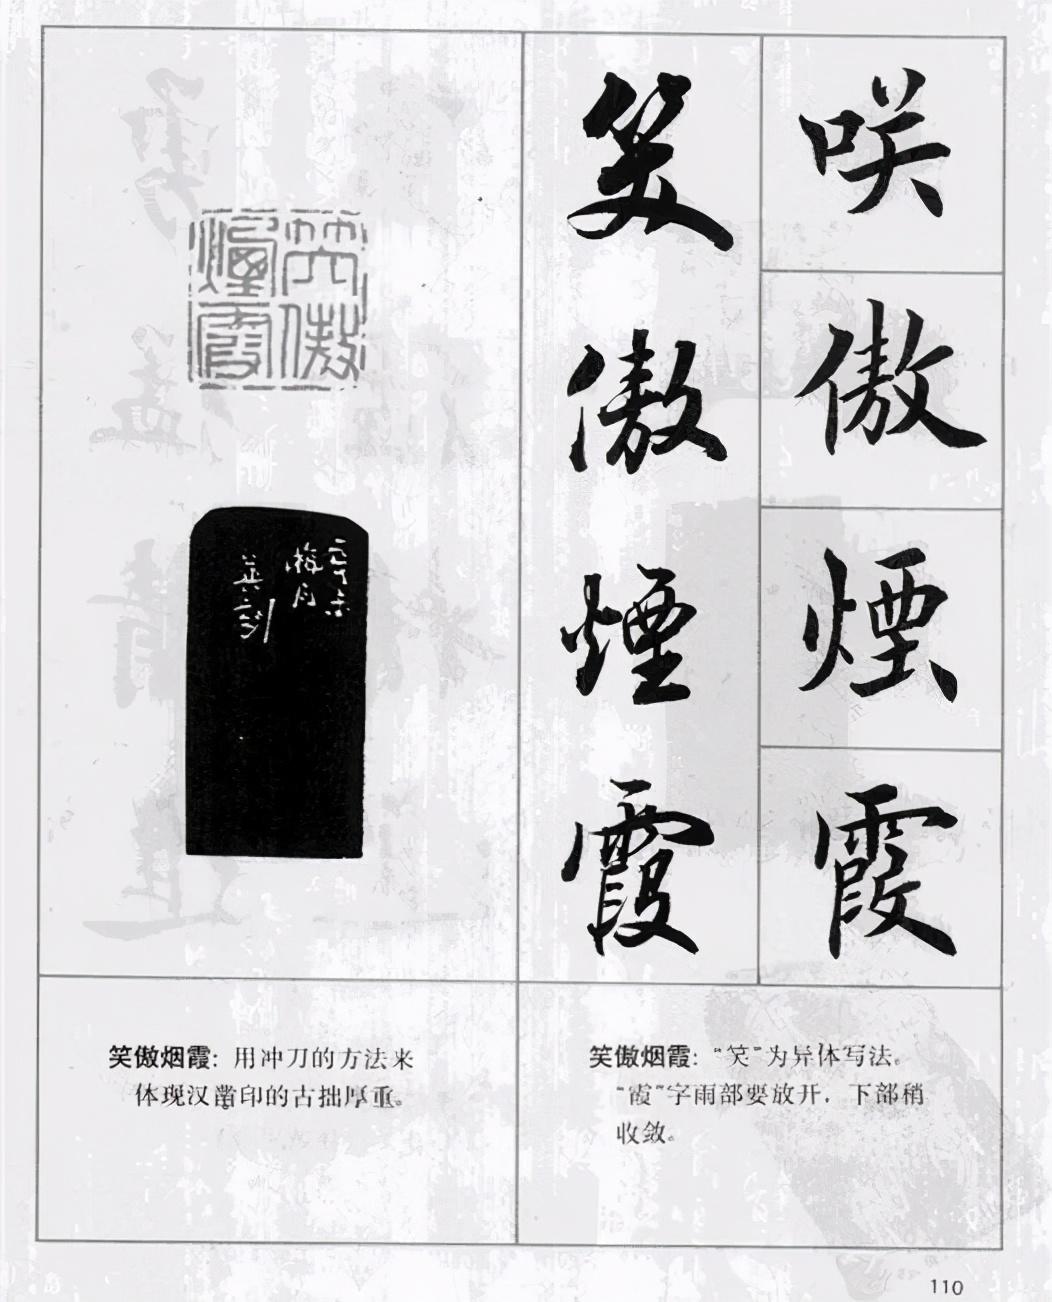 咲
傲
煙
霞
笑
傲
煙
霞
笑傲
煙霞
梅月
笑傲烟霞：用冲刀的方法来
体现汉凿印的古拙厚重。
笑傲烟霞：“笑”为异体写法。
“霞”字雨部要放开，下部稍
收敛。
110